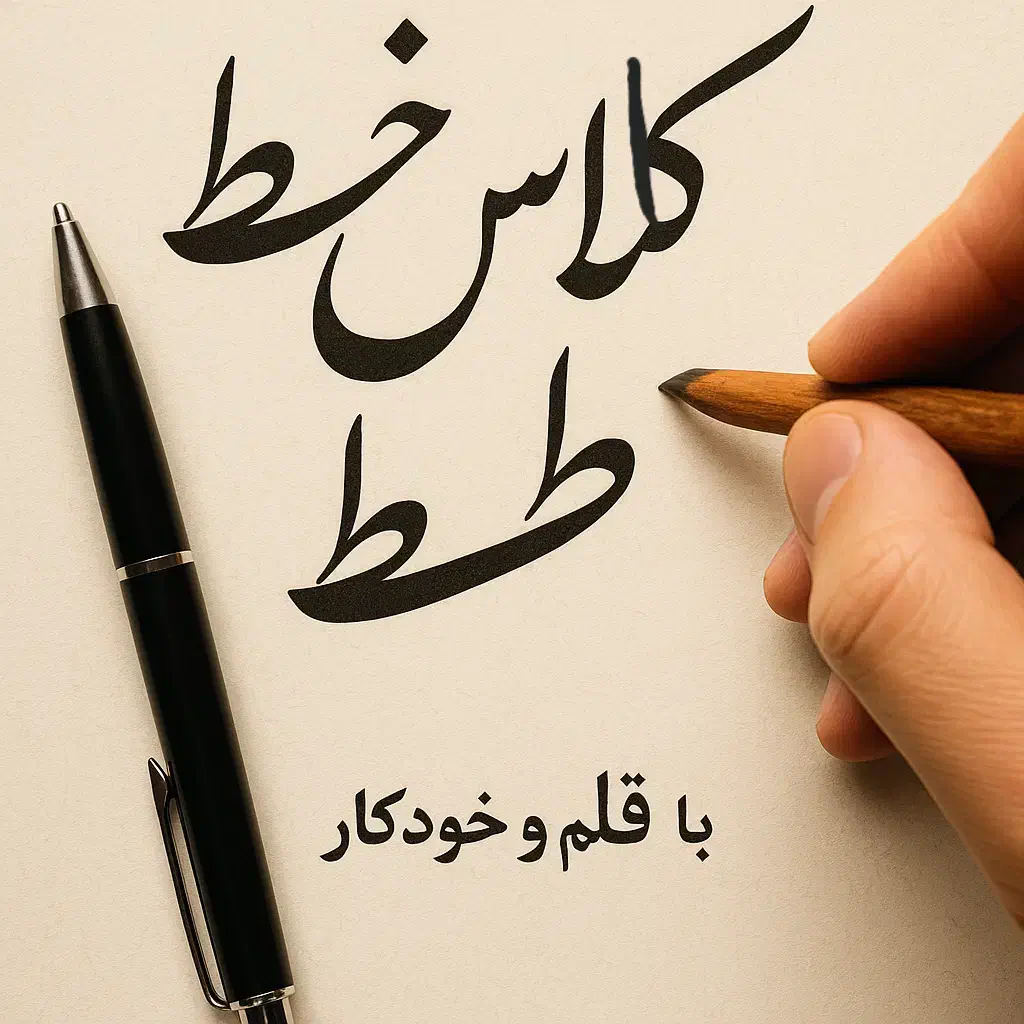 کلاس خط
طط
با قلم و خودکار